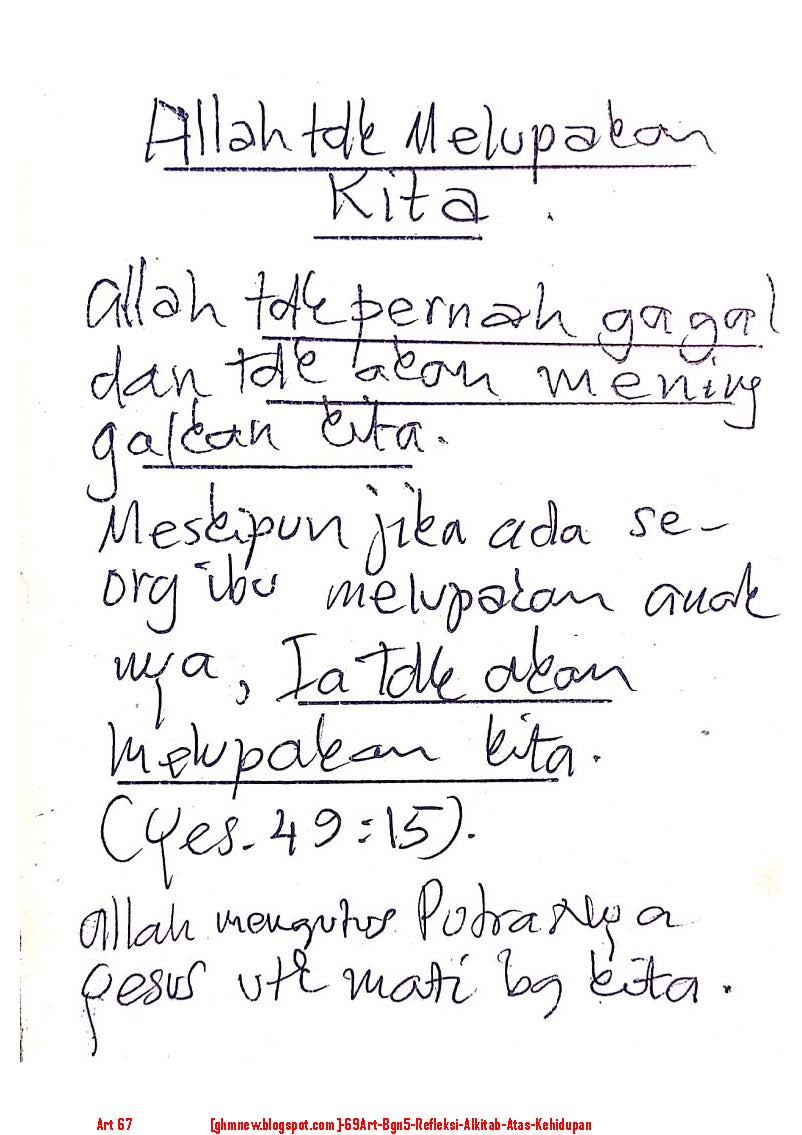 Allah tdk Melupakan
Kita.
Allah tdk pernah gagal
dan tdk akan mening
galkan kita.
Meskipun jika ada se-
org ibu melupakan anak
nya, Ia Tdk akan
Melupakan kita.
(Yes. 49:15).
Allah mengutus PutraNya
Yesus utk mati bg kita.
Art 67 [ghmnew.blogspot.com]-69Art-Bgn5-Refleksi-Alkitab-Atas-Kehidupan